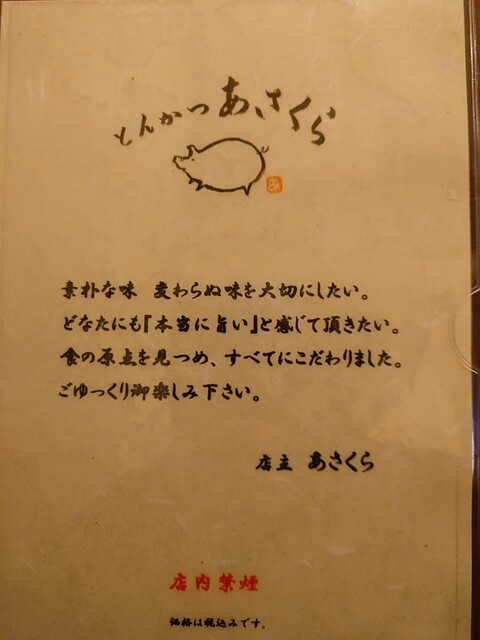 とんかつ あさくら
あ
素朴な味 変わらぬ味を大切にしたい。
どなたにも『本当に旨い』と感じて頂きたい。
食の原点を見つめ、すべてにこだわりました。
ごゆっくり御楽しみ下さい。
店主 あさくら
店内禁煙
価格は税込みです。